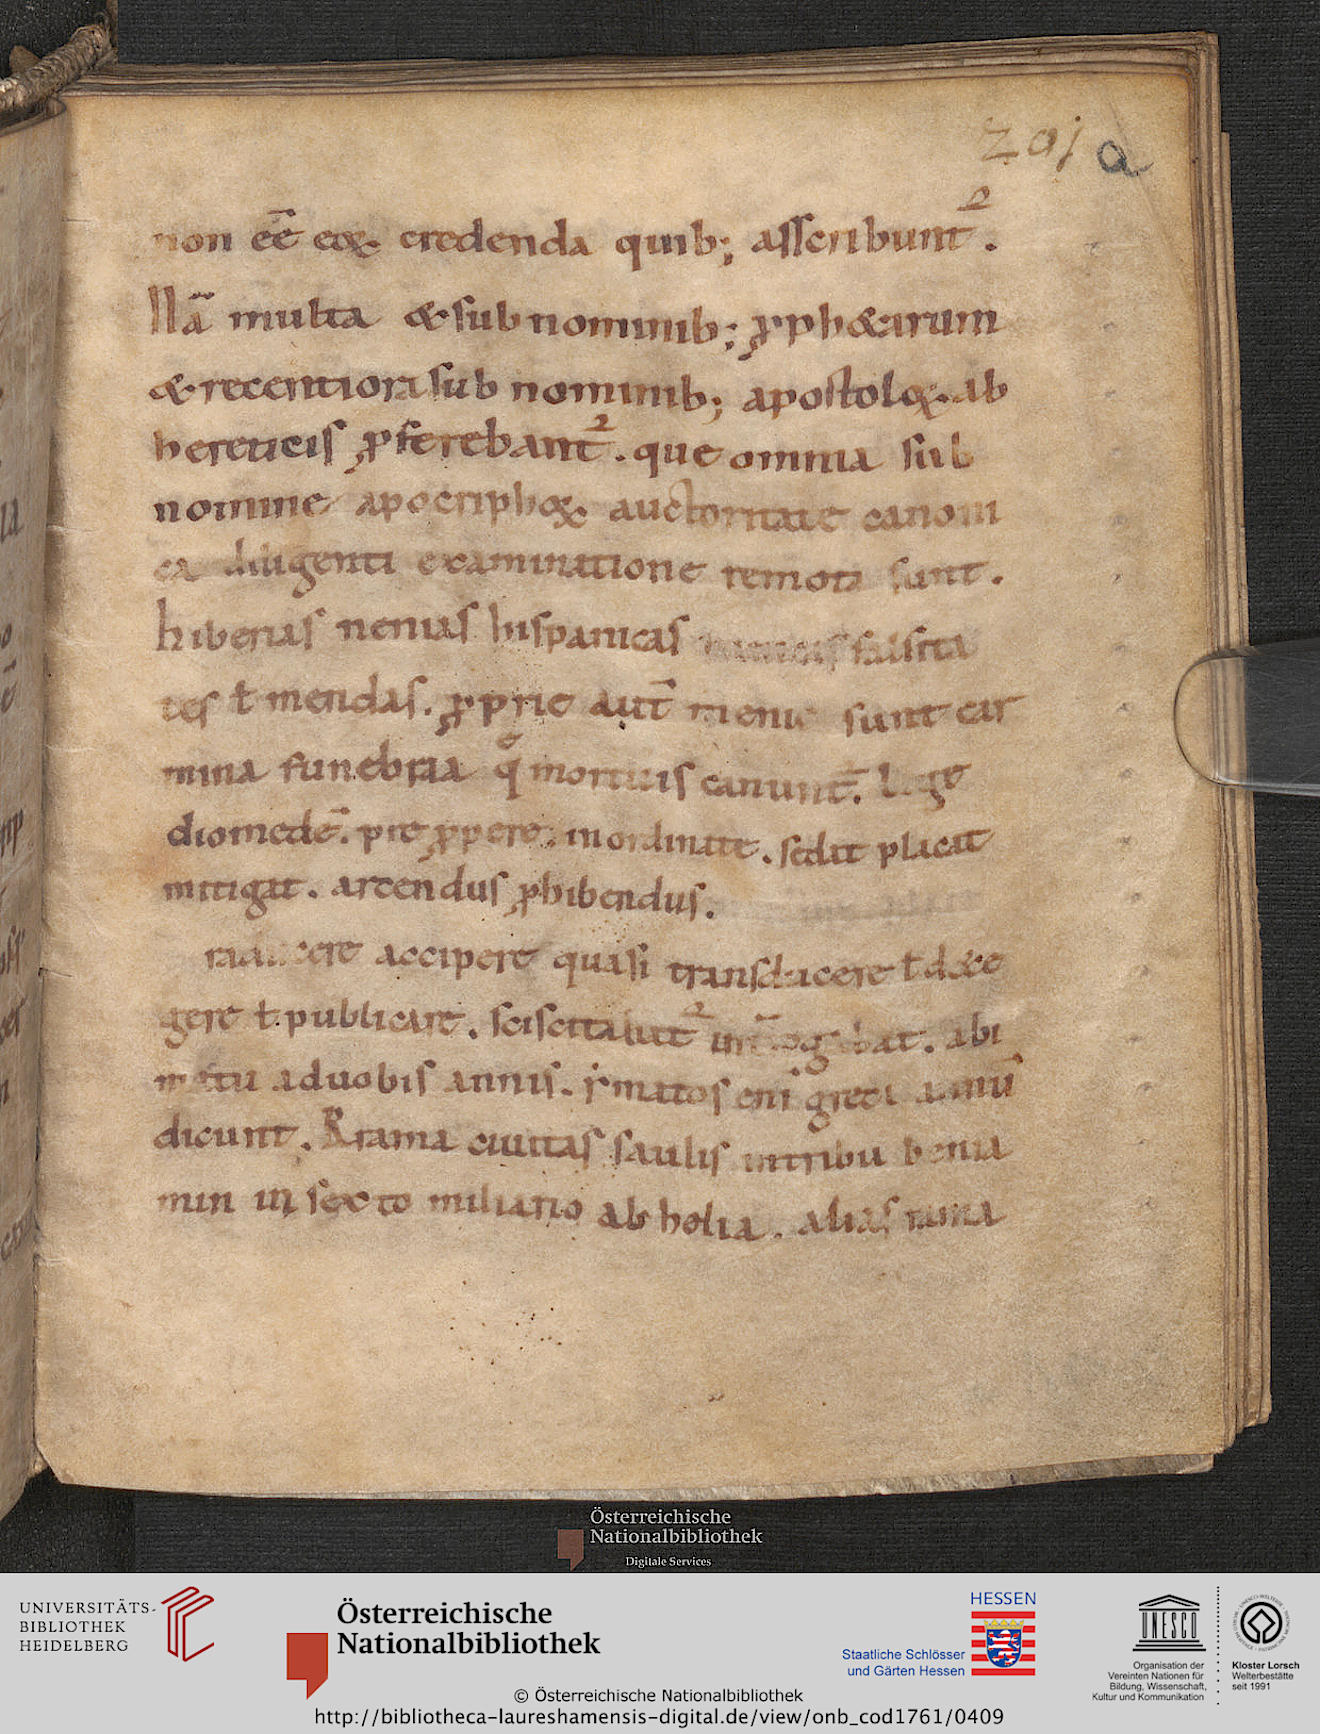 201 a
non eē eoꝝ credenda quib; asscribunt᷑.
Nā multa & sub nominib; ꝓph&arum
& recentiora sub nominib; apostoloꝝ ab
hereticis ꝓferebant᷑. que omnia sub
nomine apocriphoꝝ auctoritate canoni
ca diligenti examinatione remota sunt.
hiberias nenias hispanicas falsita
tes ƚ mendas. ꝓprie aut̄ nenie sunt car
mina funebria q̄ mortuis canunt᷑. Lege
diomedē. pre ꝓpere. inordinate. sedat placat
mitigat. arcendus ꝓhibendus.
traducere accipere quasi transducere ƚ d&e
gere ƚ publicare. sciscitabat᷑ int̄rogabat. abi
matu a duobis annis. ẏmatos eni greci annū
dicunt. Rrama ciuitas saulis in tribu benia
min in sexto miliario ab helia. alias rama
Österreichische
Nationalbibliothek
Digitale Services
UNIVERSITÄTS-
BIBLIOTHEK
HEIDELBERG
Österreichische
Nationalbibliothek
HESSEN
Staatliche Schlösser
und Gärten Hessen
UNESCO
Organisation der
Vereinten Nationen für
Bildung, Wissenschaft,
Kultur und Kommunikation
Kloster Lorsch
Welterbestätte
seit 1991
© Österreichische Nationalbibliothek
http://bibliotheca-laureshamensis-digital.de/view/onb_cod1761/0409